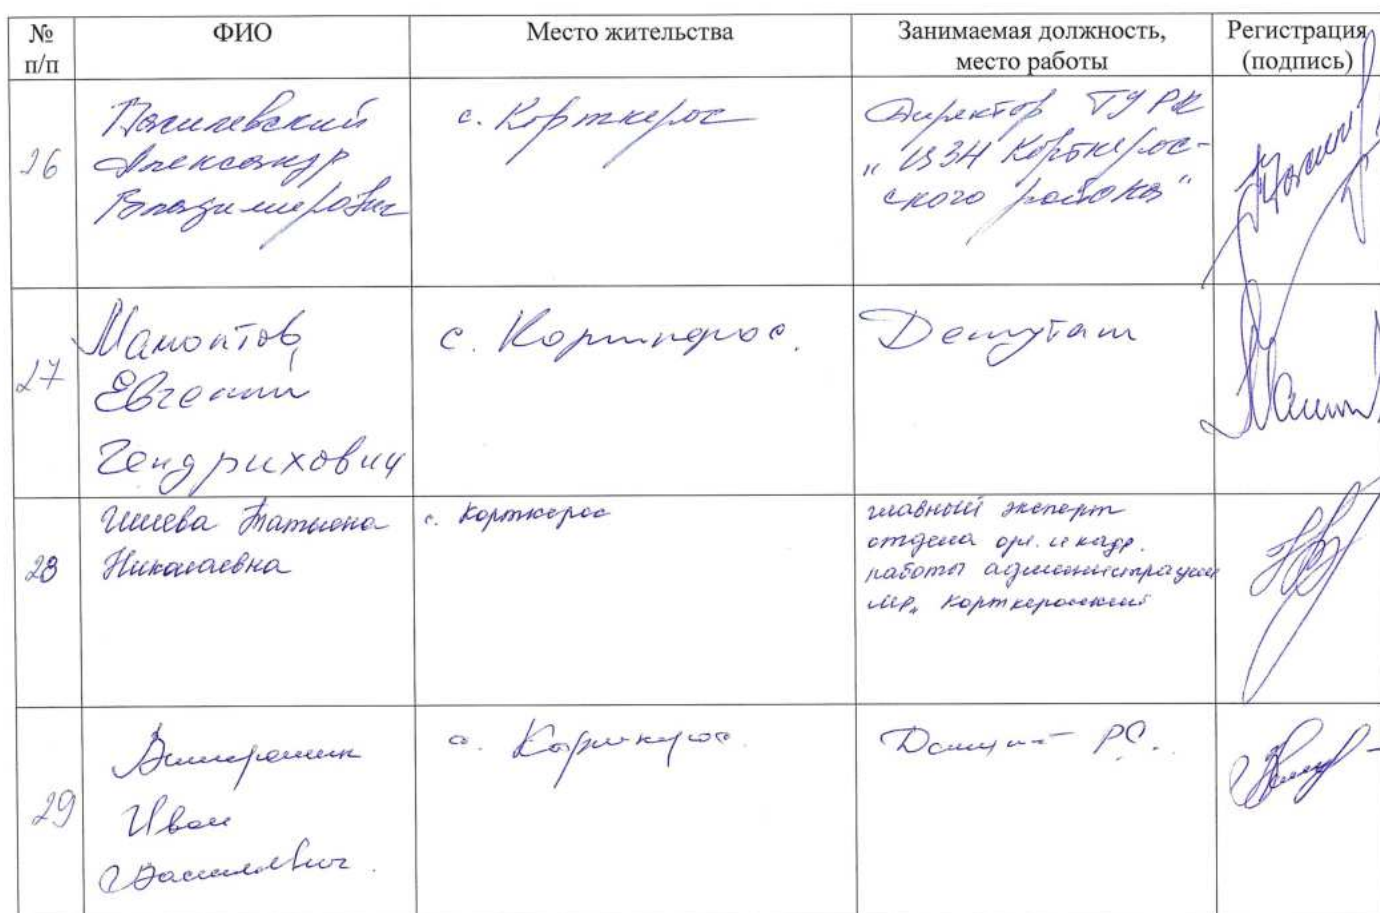 № п/п
ФИО
Место жительства
Занимаемая должность, место работы
Регистрация (подпись)
26
Александр
Владимирович
с. Корткерос
Директор ГУ РК
"ЦЗН Корткерос-
ского района"
27
Мамонтов
Евгений
Гендрихович
с. Корткерос.
Депутат
28
Татьяна
Николаевна
с. Корткерос
главный эксперт
отдела орг. и кадр.
работы администрации
МР "Корткеросский
29
Иван
Васильевич.
с. Корткерос
Депутат РС.